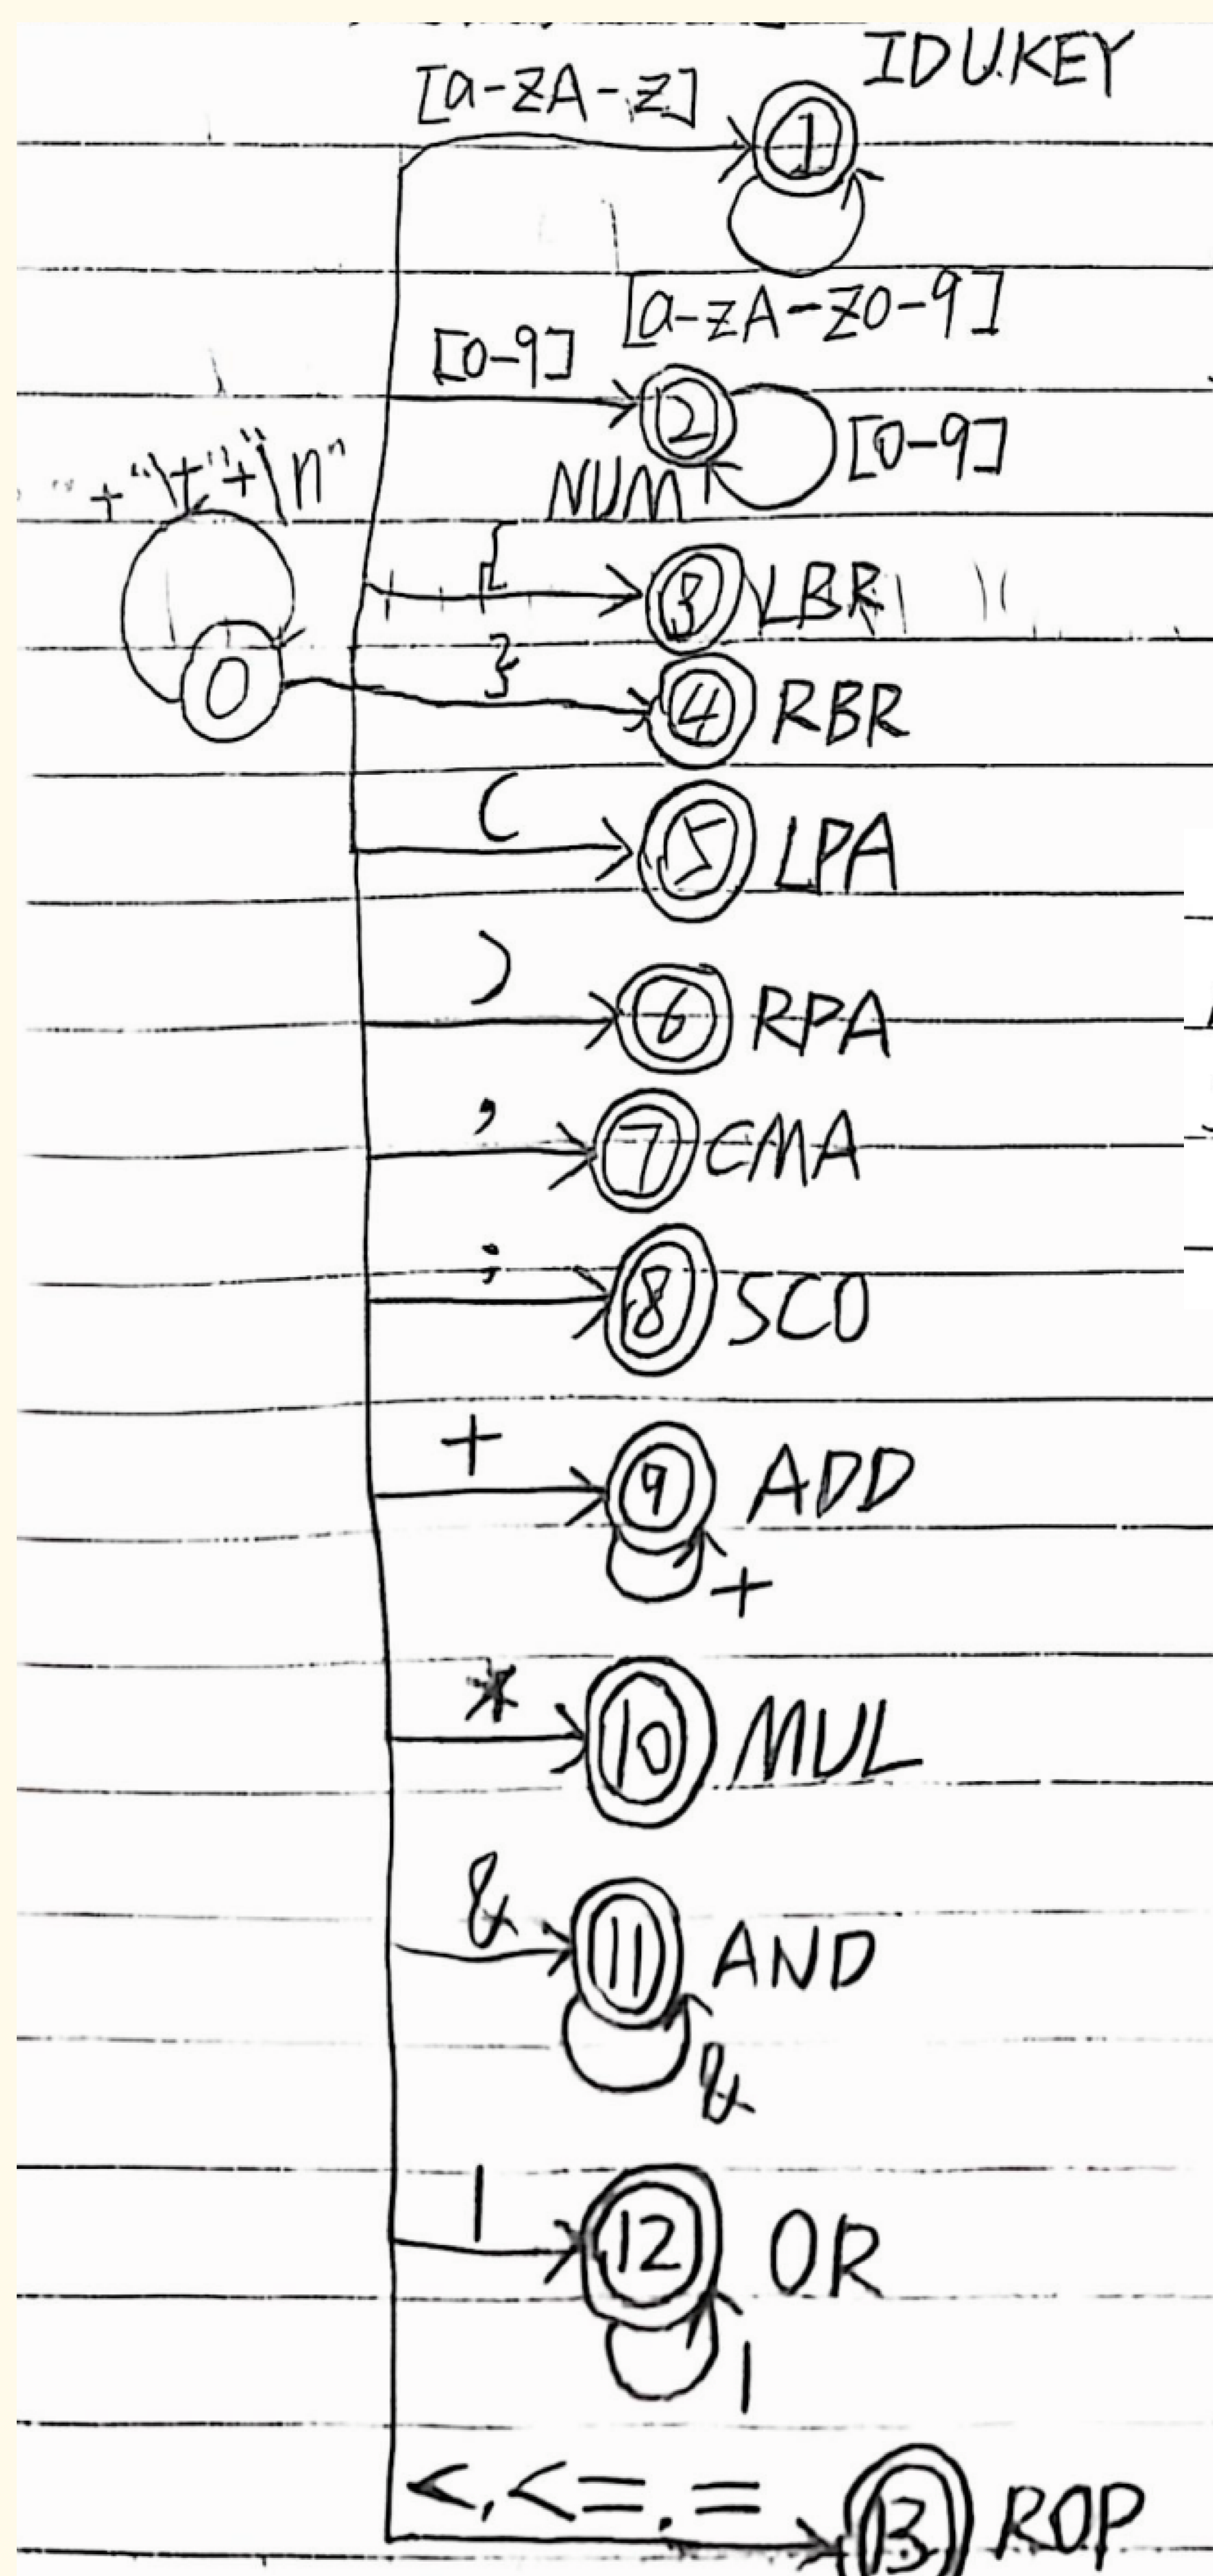 IDU.KEY
[a-zA-z]
1
[a-zA-Z0-9]
[0-9]
2
[0-9]
" "+"\t"+\n"
NUM
{
3 LBR
}
0
4 RBR
(
5 LPA
)
6 RPA
,
7 CMA
;
8 SCO
+
9 ADD
+
*
10 MUL
&
11 AND
&
|
12 OR
|
<,<=.=
13 ROP